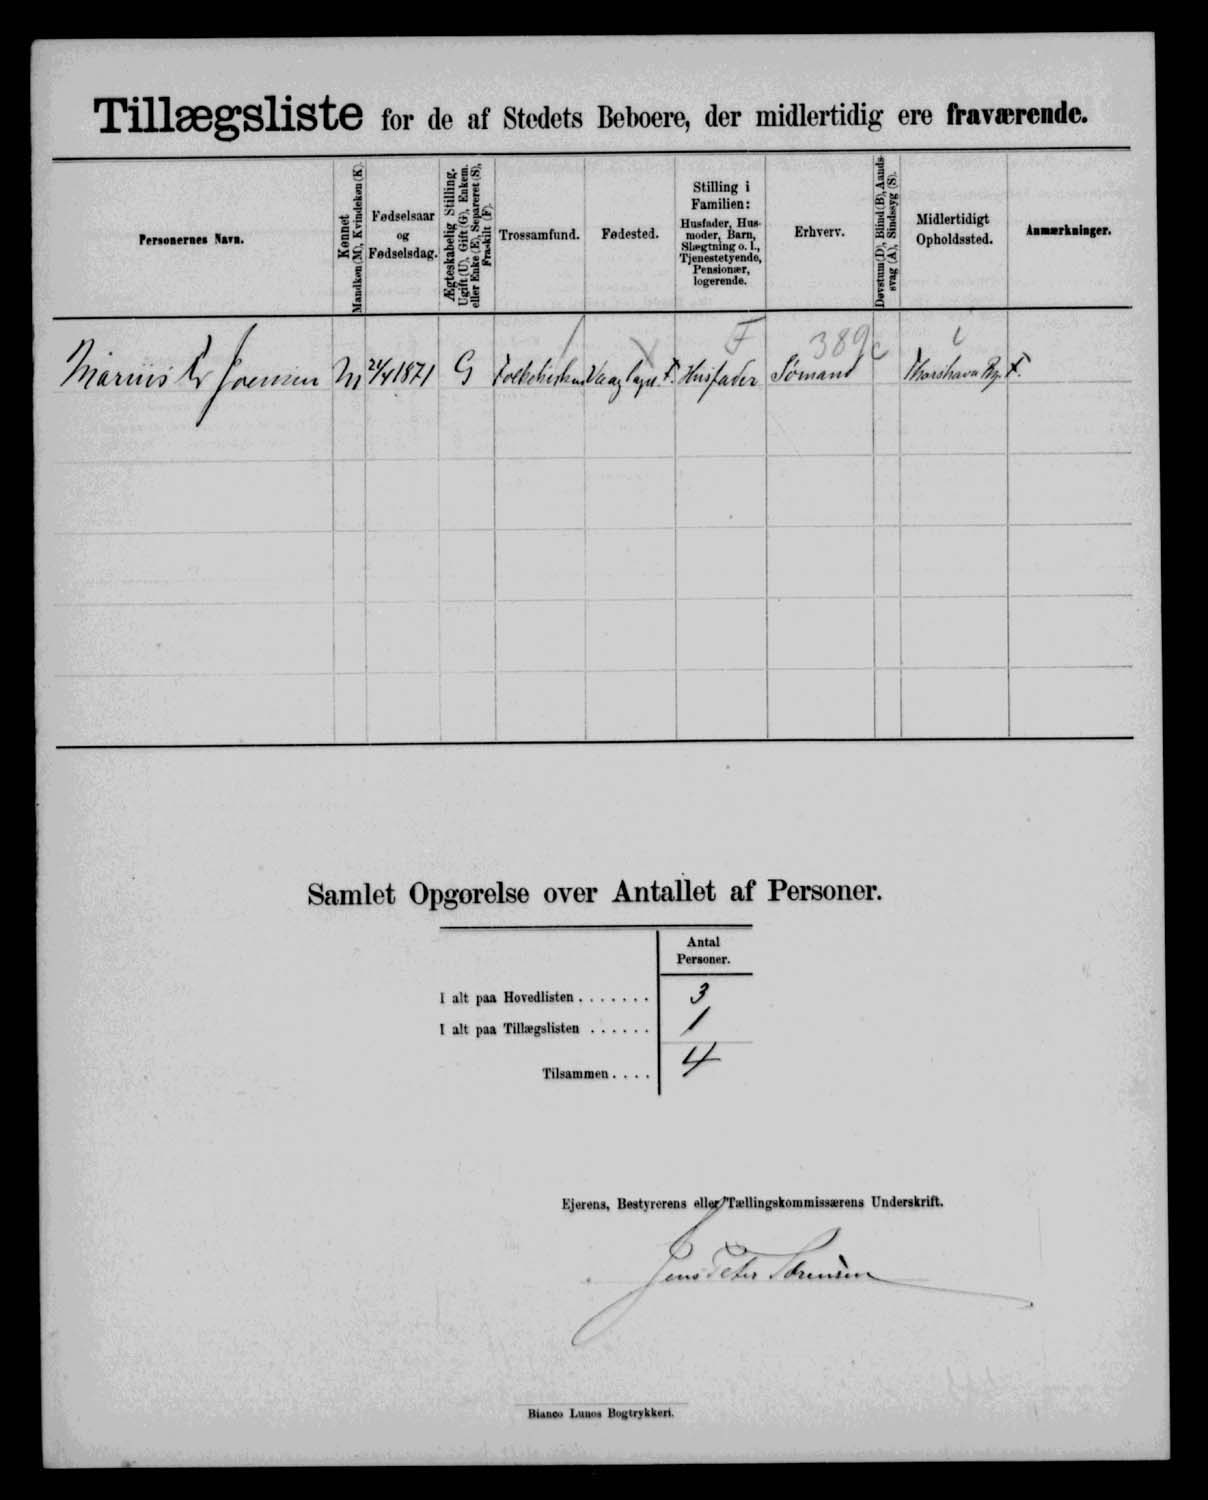 Tillægsliste for de af Stedets Beboere, der midlertidig ere fraværende.
Personernes Navn.
Kønnet
Mandkøn (M), Kvindekøn (K).
Fødselsaar
og
Fødselsdag.
Ægteskabelig Stilling.
Ugift (U), Gift (G), Enkem.
eller Enke (E), Separeret (S),
Fraskilt (F).
Trossamfund.
Fødested.
Stilling i
Familien:
Husfader, Hus-
moder, Barn,
Slægtning o. l.,
Tjenestetyende,
Pensionær,
logerende.
Erhverv.
Døvstum (D), Blind (B), Aands-
svag (A), Sindssyg (S).
Midlertidigt
Opholdssted.
Anmærkninger.
F 389c
Marius M 21/4 1871 G Folkekirken F. Husfader Sømand Thorshavn By F.
Samlet Opgørelse over Antallet af Personer.
Antal
Personer.
I alt paa Hovedlisten . . . . . . . 3
I alt paa Tillægslisten . . . . . . 1
Tilsammen . . . . 4
Ejerens, Bestyrerens eller Tællingskommissærens Underskrift.
Jens Peter Sørensen
Bianco Lunos Bogtrykkeri.